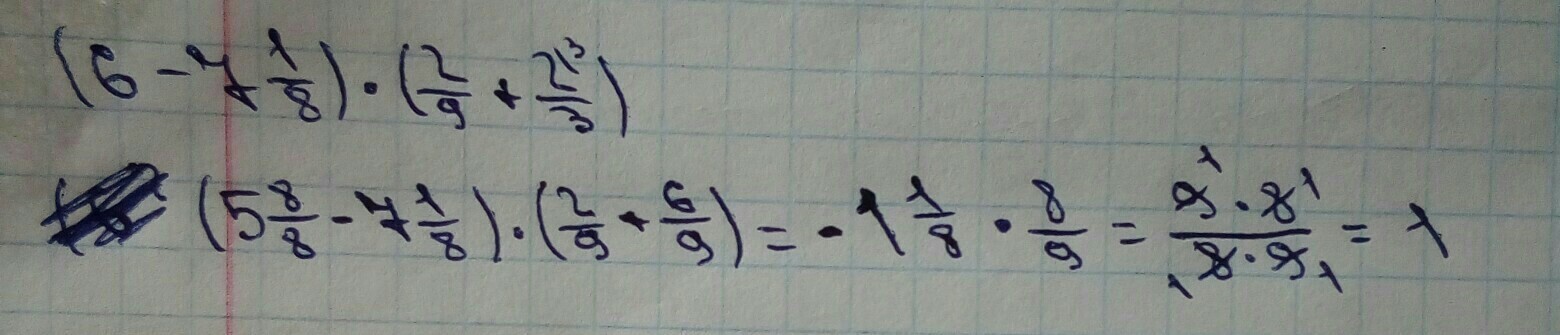 (6 - 7 1/8) · (2/9 + 2\3/3)
(5 8/8 - 7 1/8) · (2/9 + 6/9) = - 1 1/8 · 8/9 = 9¹ · 8¹ / ₁8 · 9₁ = 1